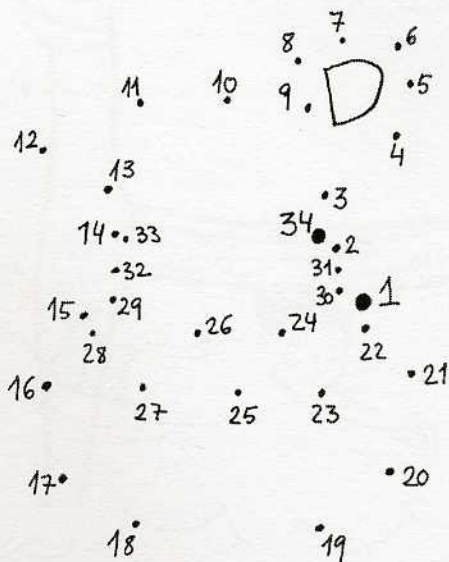 7
8 6
D
11 10 9 5
12 4
13
3
14 33 34 2
32 31
15 29 30 1
28 26 24 22
16 27 25 23 21
17 20
18 19